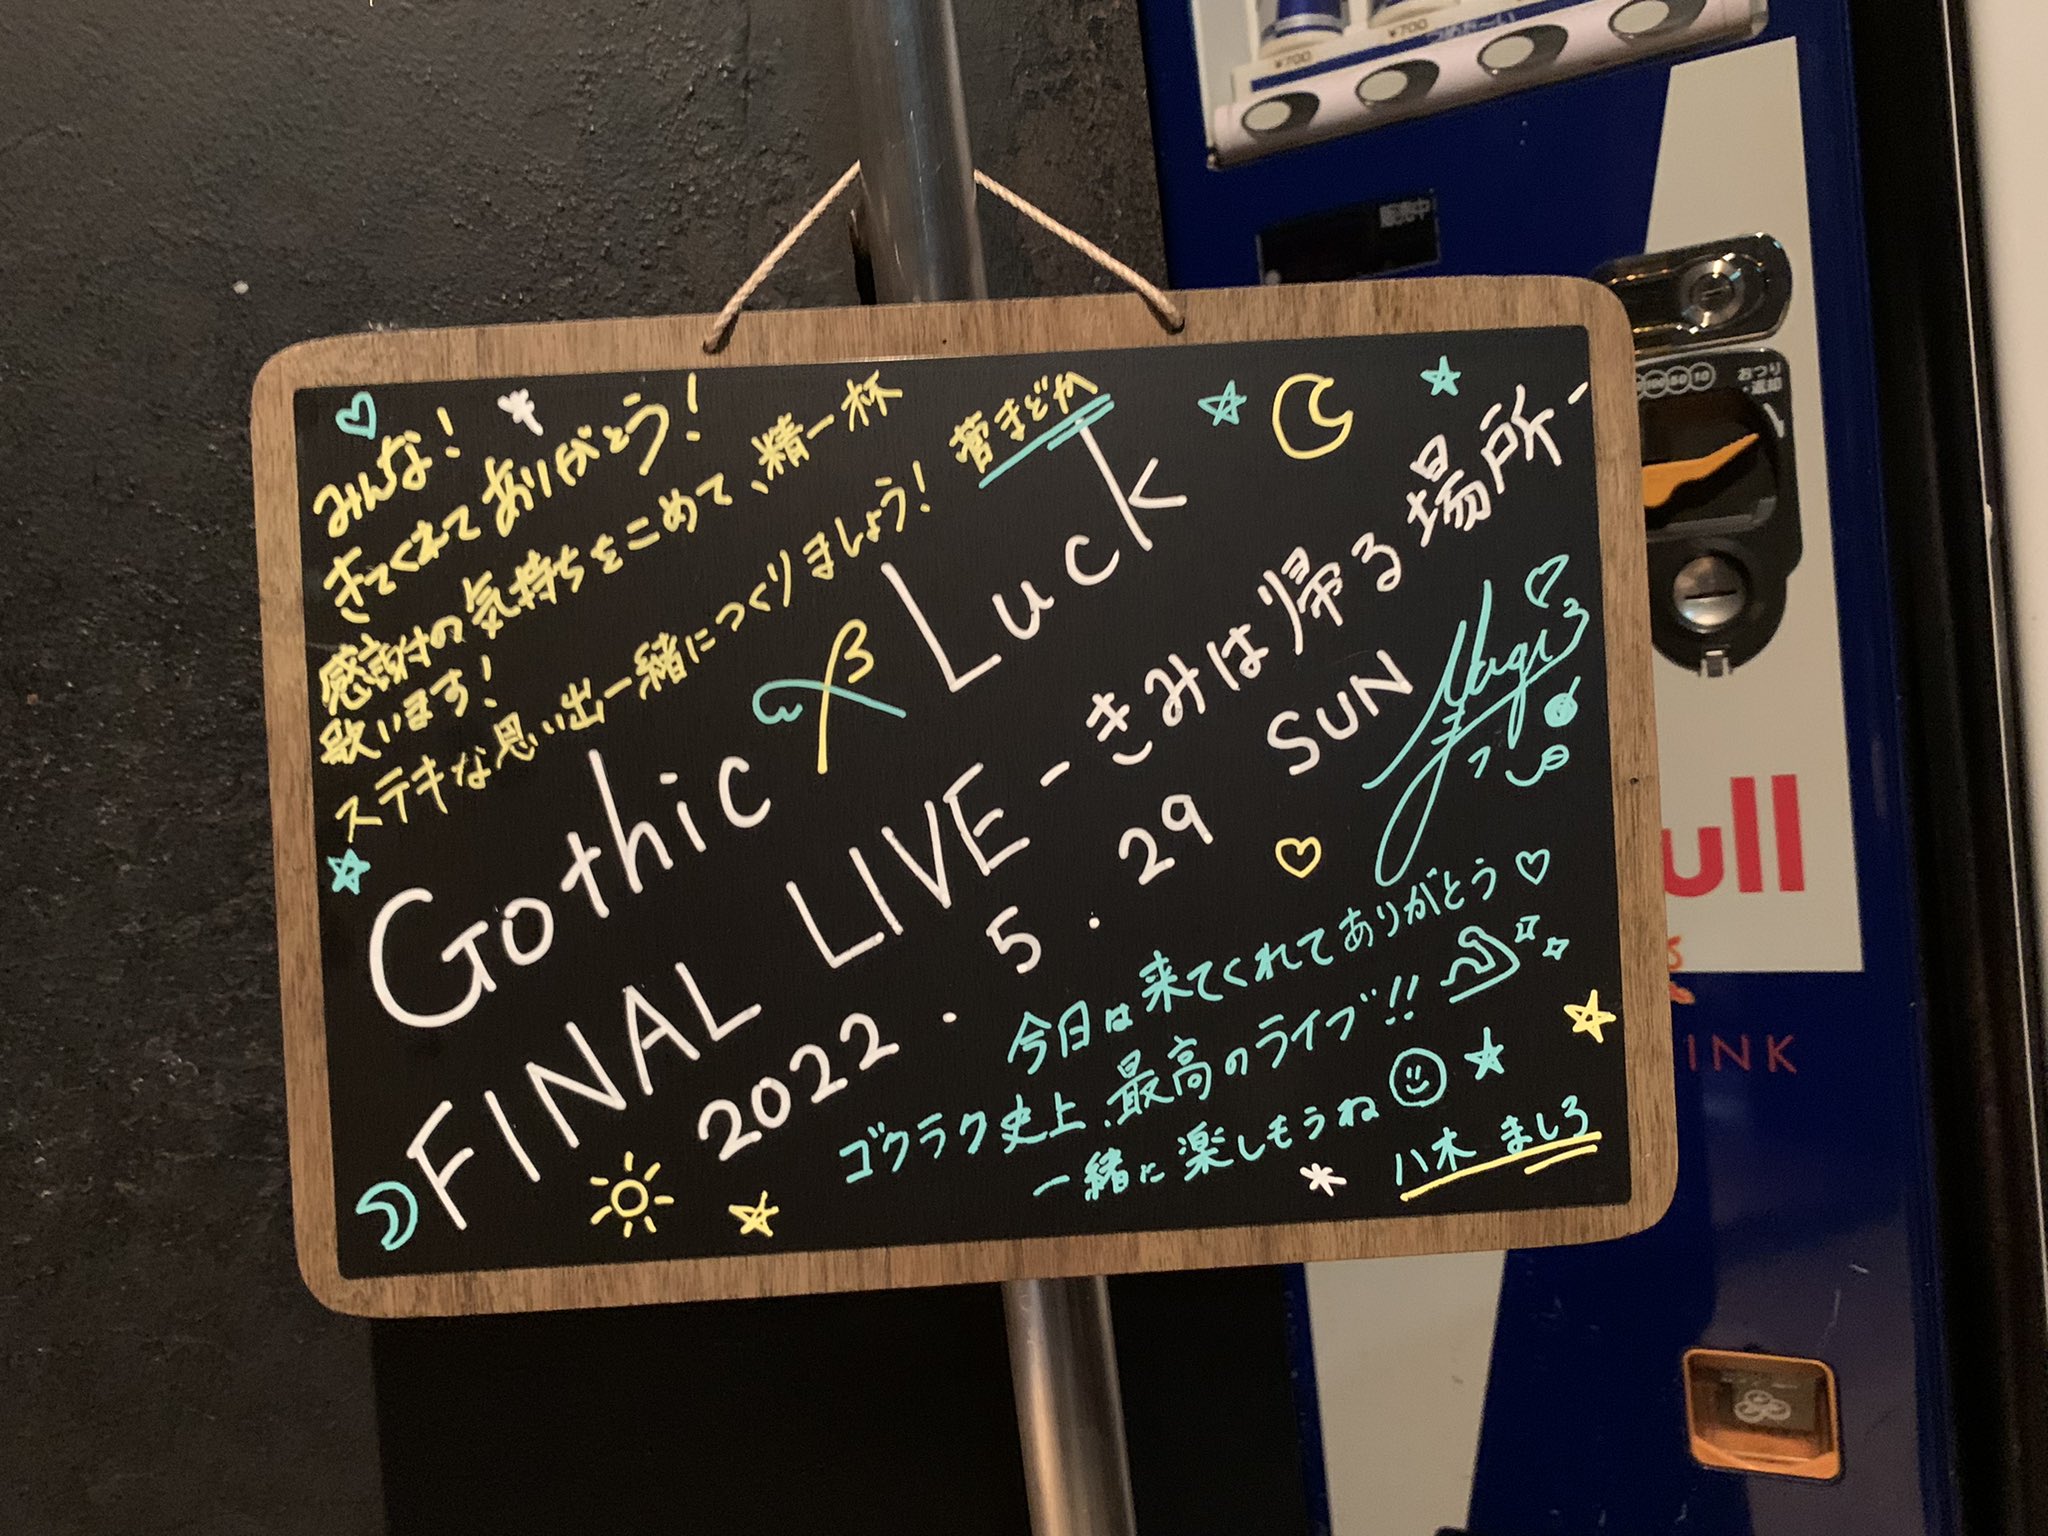 みんな！
きてくれてありがとう！
感謝の気持ちをこめて、精一杯
歌います！
ステキな思い出一緒につくりましょう！ 菅まどか
Gothic × Luck
FINAL LIVE -きみは帰る場所-
2022.5.29 SUN
今日は来てくれてありがとう♡
ゴクラク史上、最高のライブ!!
一緒に楽しもうね
八木 ましろ
¥700
¥700
販売中
おつり
返却
ull
INK